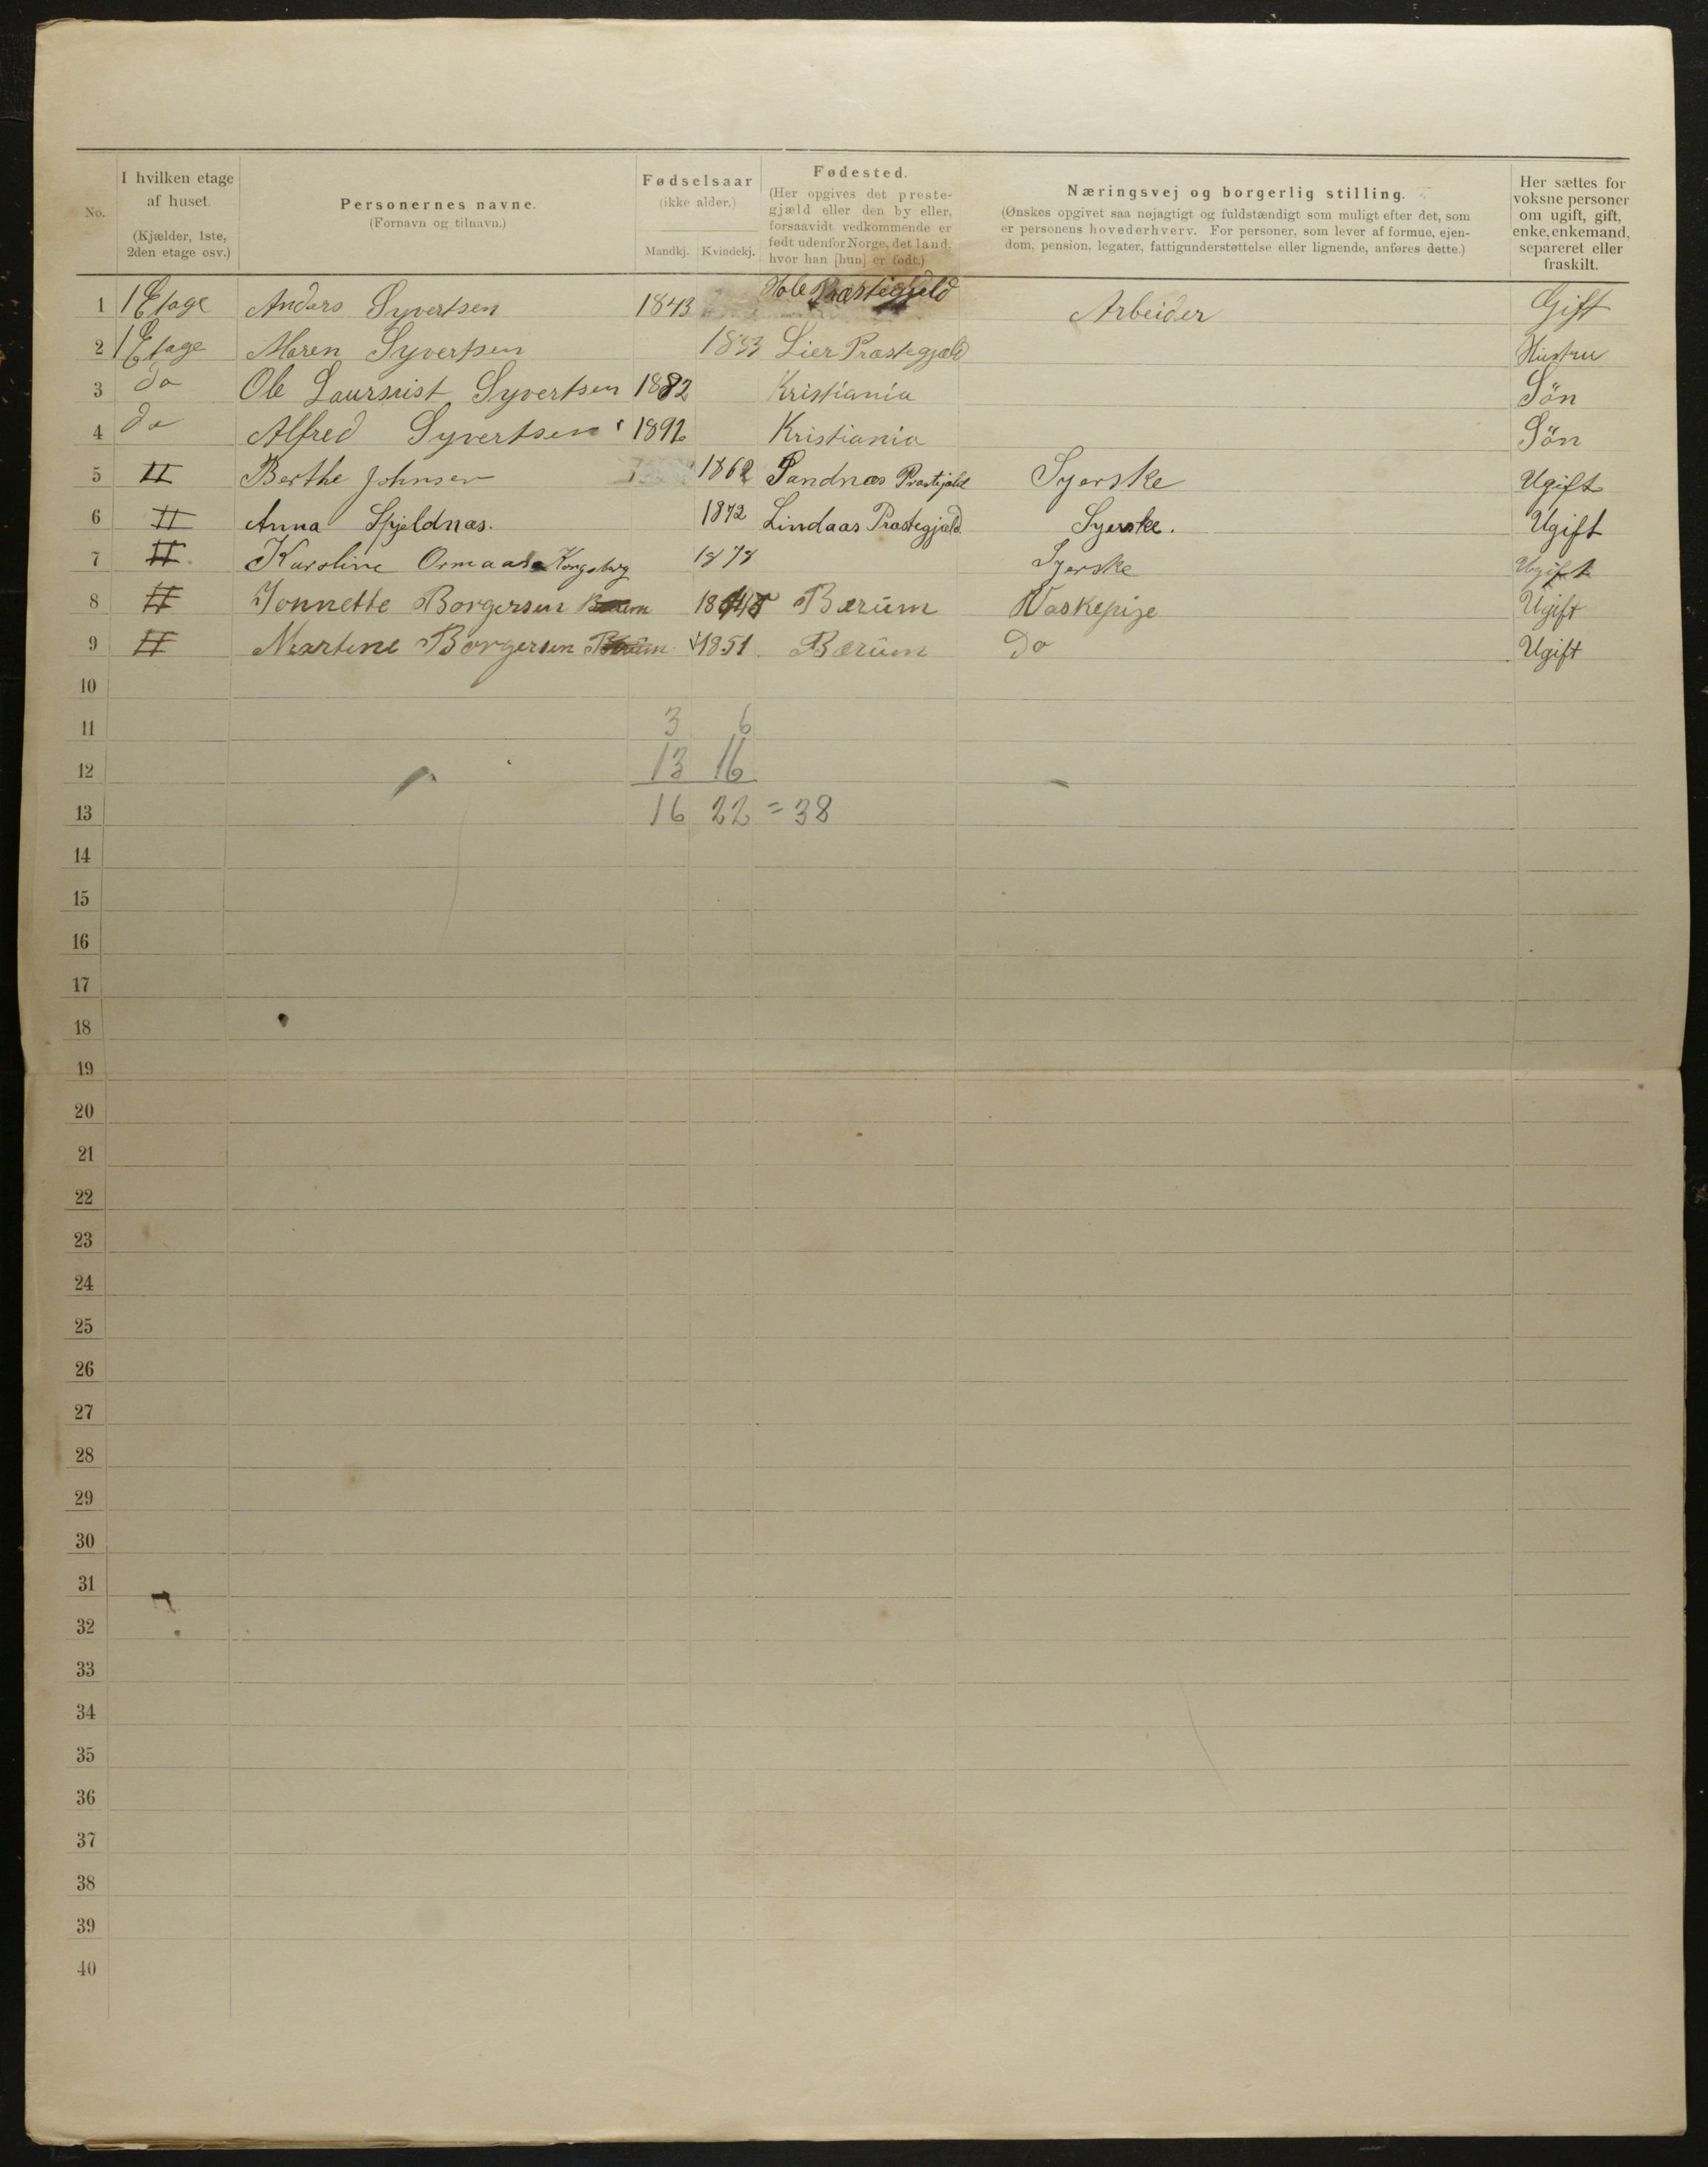 No.
I hvilken etage af huset. (Kjælder, 1ste, 2den etage osv.)
Personernes navne. (Fornavn og tilnavn.)
Fødselsaar (ikke alder.) Mandkj. Kvindekj.
Fødested. (Her opgives det prestegjæld eller den by eller, forsaavidt vedkommende er født udenfor Norge, det land, hvor han [hun] er født.)
Næringsvej og borgerlig stilling.
(Ønskes opgivet saa nøjagtigt og fuldstændigt som muligt efter det, som
er personens hovederhverv. For personer, som lever af formue, ejen-
dom, pension, legater, fattigunderstøttelse eller lignende, anføres dette.)
Her sættes for voksne personer om ugift, gift, enke, enkemand, separeret eller fraskilt.
1 1 Etage Anders Syvertsen 1843 Hole Præstegjeld Arbeider Gift
2 1 Etage Maren Syvertsen 1853 Lier Præstegjæld Hustru
3 do Ole Syvertsen 1882 Kristiania Sön
4 do Alfred Syvertsen 1892 Kristiania Sön
5 II Berthe Johnsen 1862 Sandnæs Syerske Ugift
6 II Anna 1872 Lindaas Præstegjæld Syerske. Ugift
7 II Karoline Kongsberg 1878 Syerske Ugift
8 II Jonnette Borgersen Bærum Vaskepige Ugift
9 II Martine Borgersen 1851 Bærum Do Ugift
10
11 3 6
12 13 16
13 16 22 = 38
14
15
16
17
18
19
20
21
22
23
24
25
26
27
28
29
30
31
32
33
34
35
36
37
38
39
40